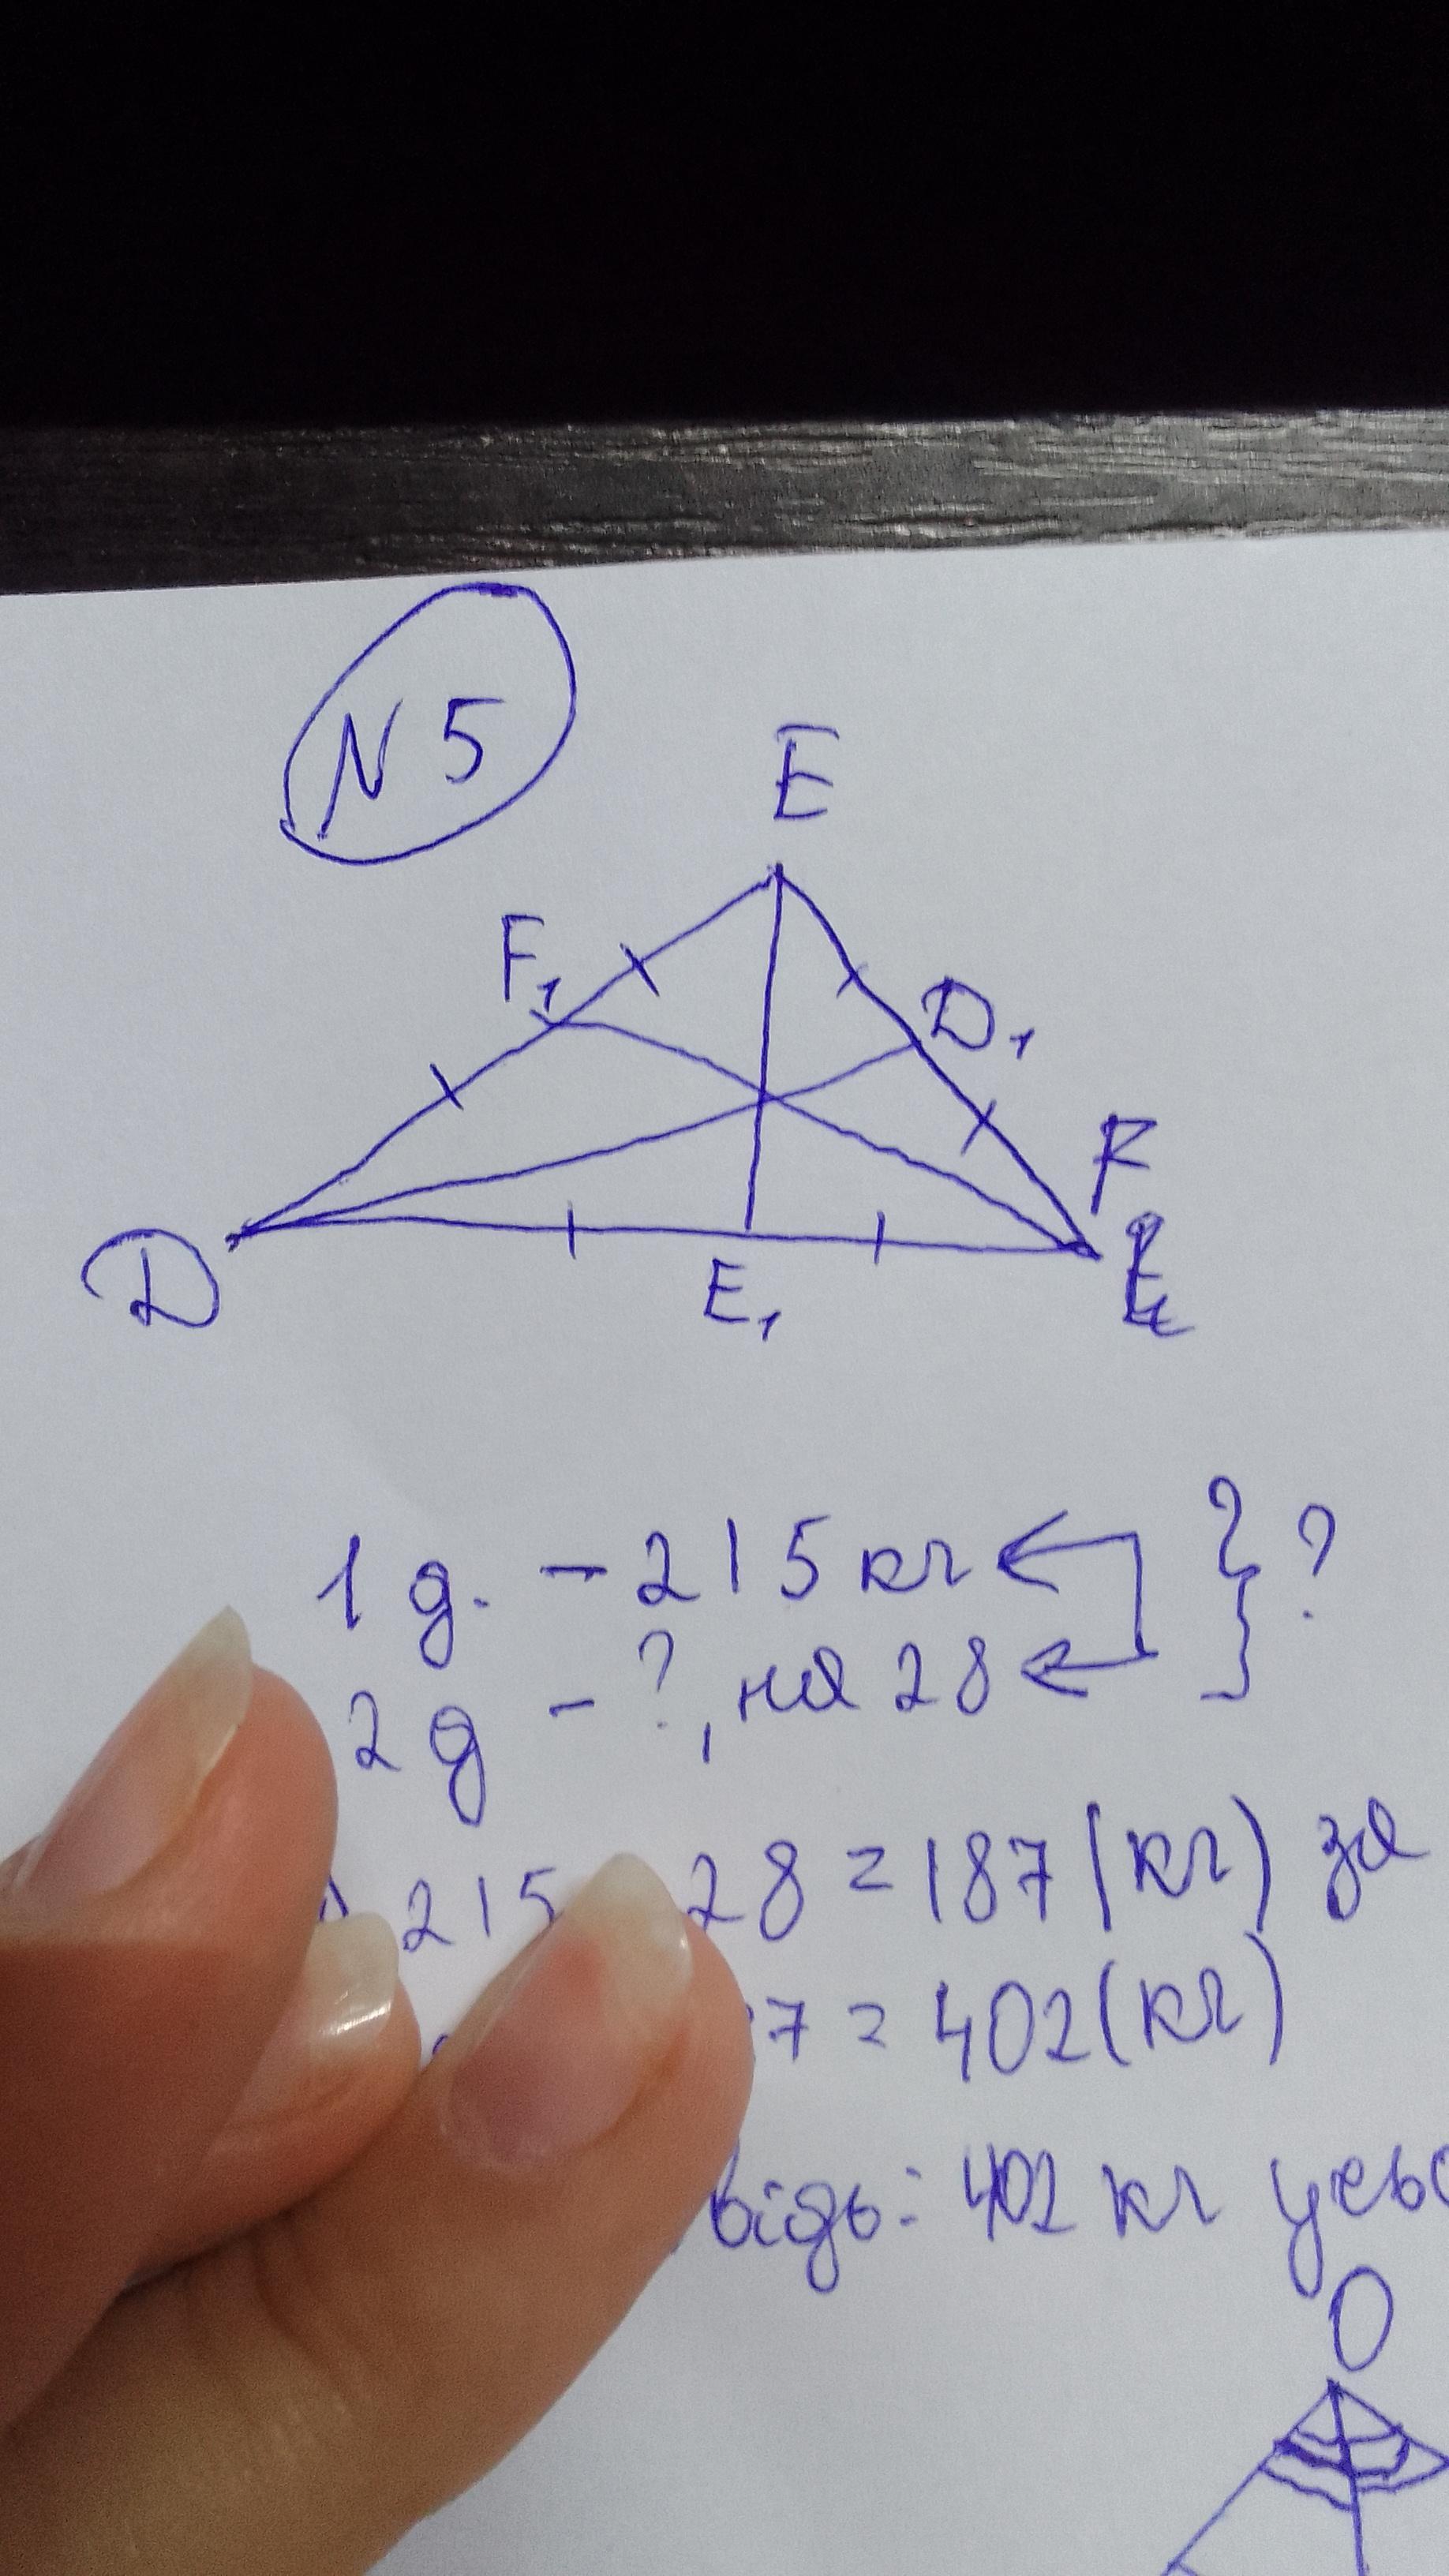 N 5
E
F₁
D₁
F
D
E₁
1 д. – 215 кг } ?
2 д – ?, на 28
215 28 = 187 (кг) за
7 = 402 (кг)
відь: 402 кг
O